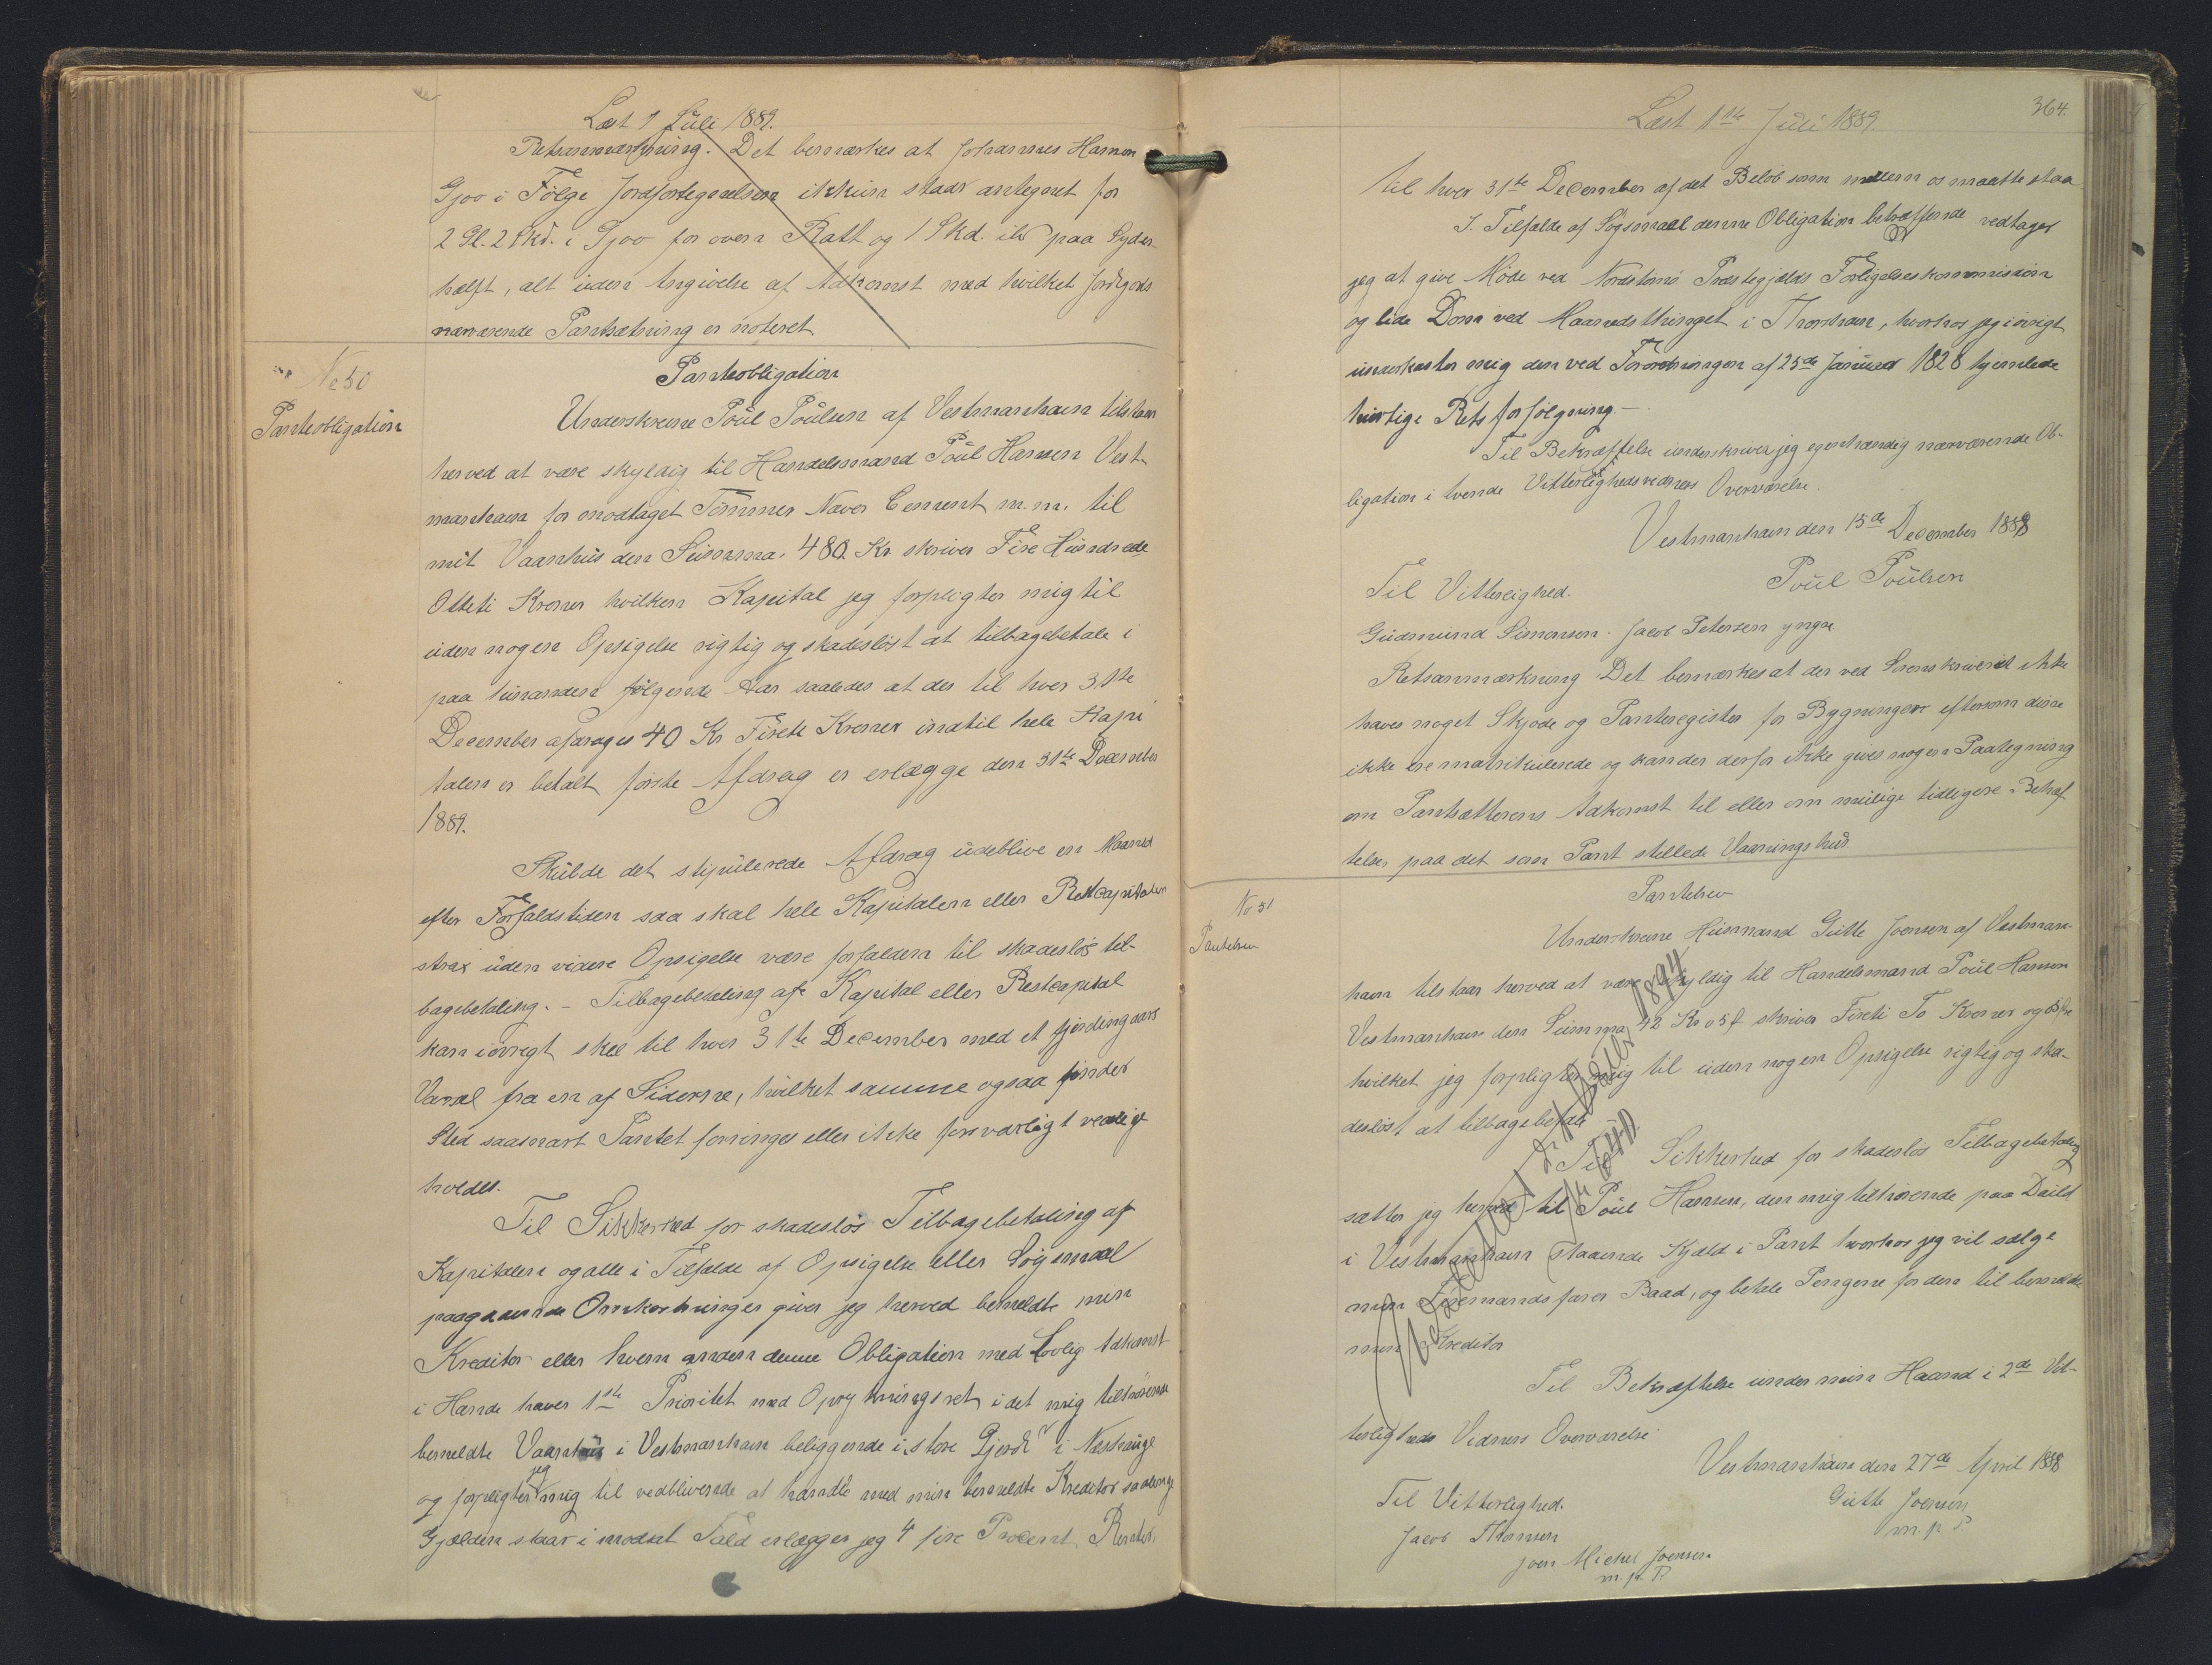 Læst 1 Juli 1889.
Retsanmærkning. Det bemærkes at Johannes Hansen
Gjoo i Følge Jordfortegnelsen ikkun staar antegnet for
2 Gl. 2 Skd. i Gjoo for oven Ratt og 1 Skd. ib paa Syder
hælft, alt uden Angivelse af Adkomst med hvilket Jordgods
nærværende Pantsætning er noteret
No 50
Panteobligation
Panteobligation
Underskrevne Poul Poulsen af Vestmanhavn tilstaar
herved at være skyldig til Handelsmand Poul Hansen Vest-
manhavn for modtaget Tømmer Næver Cement m.m. til
mit Vaanhus den Summa. 480. Kr skriver Fire Hundrede
Otteti Kroner hvilken Kapital jeg forpligter mig til
uden nogen Opsigelse rigtig og skadesløst at tilbagebetale i
paa hinanden følgende Aar saaledes at der til hver 31te
December afdrages 40 Kr Fireti Kroner indtil hele Kapi
talen er betalt, første Afdrag er erlægge den 31te December
1889.
Skulde det stipulerede Afdrag udeblive en Maaned
efter Forfaldstiden saa skal hele Kapitalen eller Restcapitalen
strax uden videre Opsigelse være forfalden til skadesløs til-
bagebetaling. - Tilbagebetaling af Kapital eller Restcapital
kan iøvrigt skee til hver 31te December med et fjerdingaars
Varsel fra en af Siderne, hvilket samme ogsaa finder
Sted saasnart Pantet forringes eller ikke forsvarligt vedlige
holdes.
Til Sikkerhed for skadesløs Tilbagebetaling af
Kapitalen og alle i Tilfælde af Opsigelse eller Søgsmaal
paagaaende Omkostninger giver jeg herved bemeldte min
Kreditor eller hvem anden denne Obligation med lovlig Adkomst
i Hænde haver 1ste Prioritet med Oprykningsret i det mig tilhørende
bemeldte Vaanhus i Vestmanhavn beliggende i store Gjerdi i Næsthuge
og forpligter jeg mig til vedblivende at handle med min bemeldte Kreditor saalænge
Gjælden staar i modsat Fald erlægger jeg 4 fire Procent Renter.
364.
Læst 1ste Juli 1889.
til hver 31te December af det Beløb som mellem os maatte staa
I Tilfælde af Søgsmaal denne Obligation betræffende vedtager
jeg at give Møde ved Nordstrømø Præstegjælds Forligelseskommission
og lide Dom ved Maanedsthinget i Thorshavn, hvorhos jeg iøvrigt
underkaster mig den ved Forordningen af 25de Januar 1828 hjemlede
hurtige Retsforfølgning. -
Til Bekræftelse underskriver jeg egenhændig nærværende Ob-
ligation i tvende Vitterlighedsvidners Overværelse.
Vestmanhavn den 15de December 1888
Poul Poulsen
Til Vitterlighed.
Gudmund Simonsen. Jacob Petersen yngre
Retsanmærkning Det bemærkes at der ved Sorenskriveriet ikke
haves noget Skjøde og Panteregister for Bygninger eftersom disse
ikke ere matrikulerede og kan der derfor ikke gives nogen Paategning
om Pantsætterens Adkomst til eller om mulige tidligere Behæf
telser paa det som Pant stillede Vaaningshus.
No 51
Pantebrev
Pantebrev
Underskrevne Husmand Gutte Joensen af Vestman-
havn tilstaar herved at være skyldig til Handelsmand Poul Hansen
Vestmanhavn den Summa 42 Kr 05 f skriver Fireti To Kroner og 5 Øre
hvilket jeg forpligter mig til uden nogen Opsigelse rigtig og ska-
desløst at tilbagebetale -
Til Sikkerhed for skadesløs Tilbagebetaling
sætter jeg herved til Poul Hansen, den mig tilhørende paa
i Vestmanhavn staaende Kjæld i Pant hvorhos jeg vil sælge
min Firemandsfarer Baad, og betale Pengene for den til bemeldte
min Kreditor
Til Bekræftelse under min Haand i 2de Vit-
terligheds Vidners Overværelse
Vestmanhavn den 27de April 1888
Gutte Joensen
m. p. P.
Til Vitterlighed.
Jacob Thomsen
Joen Michel Joensen
m. p. P.